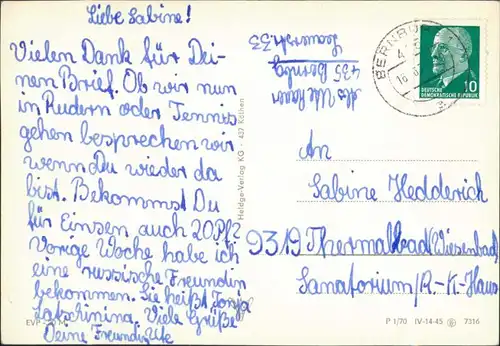 Liebe Sabine!
Vielen Dank für Dei-
nen Brief. Ob wir nun
in Rudern oder Tennis
gehen besprechen wir
wenn Du wieder da
bist. Bekommst Du
für Einsen auch 20 Pf?
Vorige Woche habe ich
eine russische Freundin
bekommen. Sie heißt Tonja
Latschinina. Viele Grüße
Deine Freundin Ute
EVP
Heldge-Verlag KG · 437 Köthen
Ute
435 Bernbg
33
BERNBURG
DEUTSCHE
DEMOKRATISCHE REPUBLIK
10
An
Sabine Hedderich
9319 Thermalbad (Wiesenbad)
Sanatorium/R.-K.-Haus
P 1/70 IV-14-45 7316